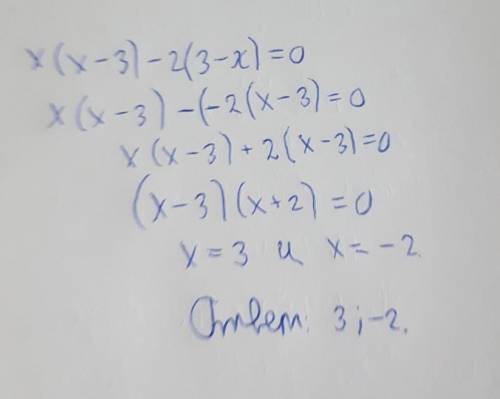 x(x-3)-2(3-x)=0
x(x-3)-(-2(x-3)=0
x(x-3)+2(x-3)=0
(x-3)(x+2)=0
x=3 и x=-2.
Ответ: 3;-2.